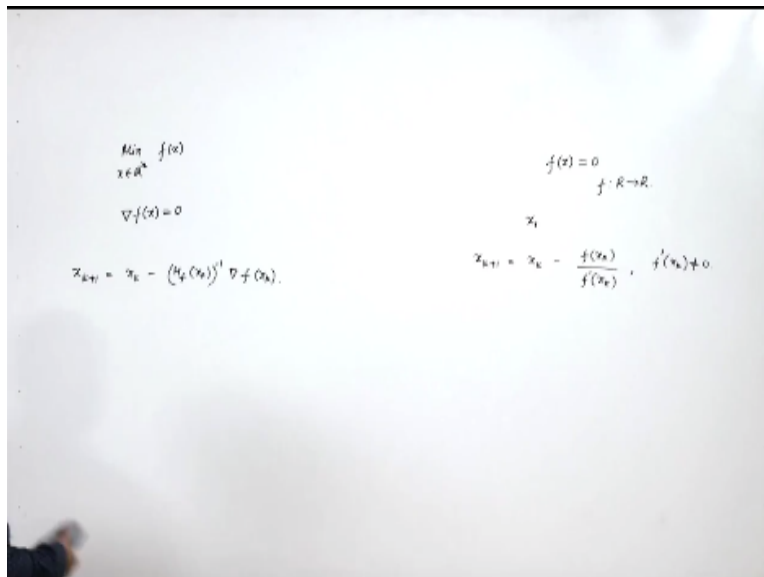 Min f(x)
x∈ℝⁿ
∇f(x) = 0
x_{k+1} = x_k - (H_f(x_k))^{-1} ∇f(x_k).
f(x) = 0
f : R→R.
x_1
x_{k+1} = x_k - f(x_k)/f'(x_k), f'(x_k) ≠ 0.